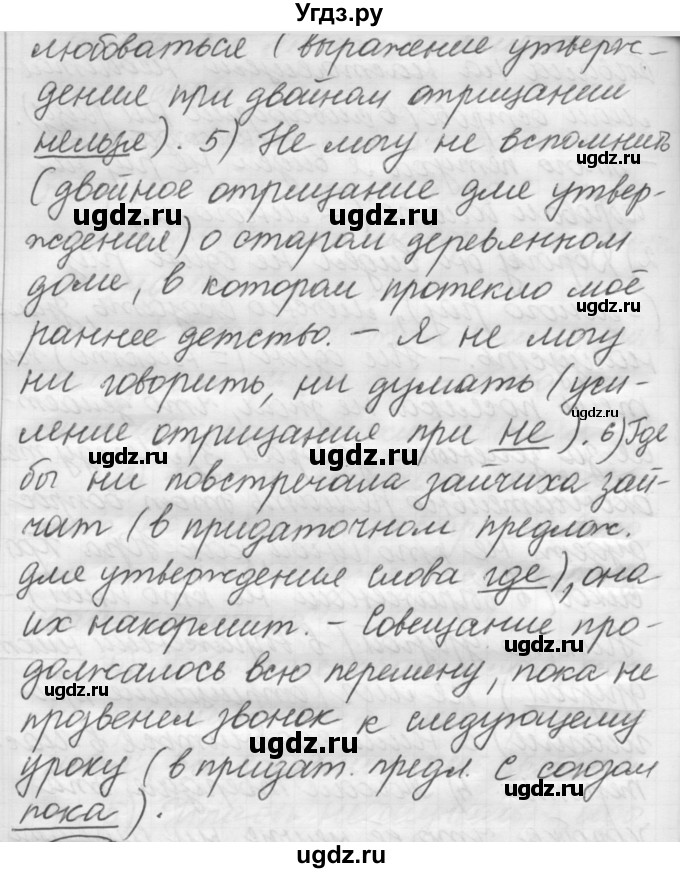 Угдз.ру
любоваться (выражение утверж-
дения при двойном отрицании
нельзя). 5) Не могу не вспомнить
ugdz.ru
(двойное отрицание для утвер-
ugdz.ru ugdz.ru
ждения) о старом деревянном
доме, в котором протекло моё
ugdz.ru
раннее детство. – Я не могу
ни говорить, ни думать (уси-
ugdz.ru
ление отрицания при не). 6) Где
ugdz.ru
бы ни повстречала зайчиха зай-
чат (в придаточном предлож.
ugdz.ru
для утверждения слова где), она
ugdz.ru
их накормит. – Совещание про-
должалось всю перемену, пока не
ugdz.ru
прозвенел звонок к следующему
ugdz.ru
уроку (в придат. предл. с союзом
ugdz.ru
пока).
ugdz.ru